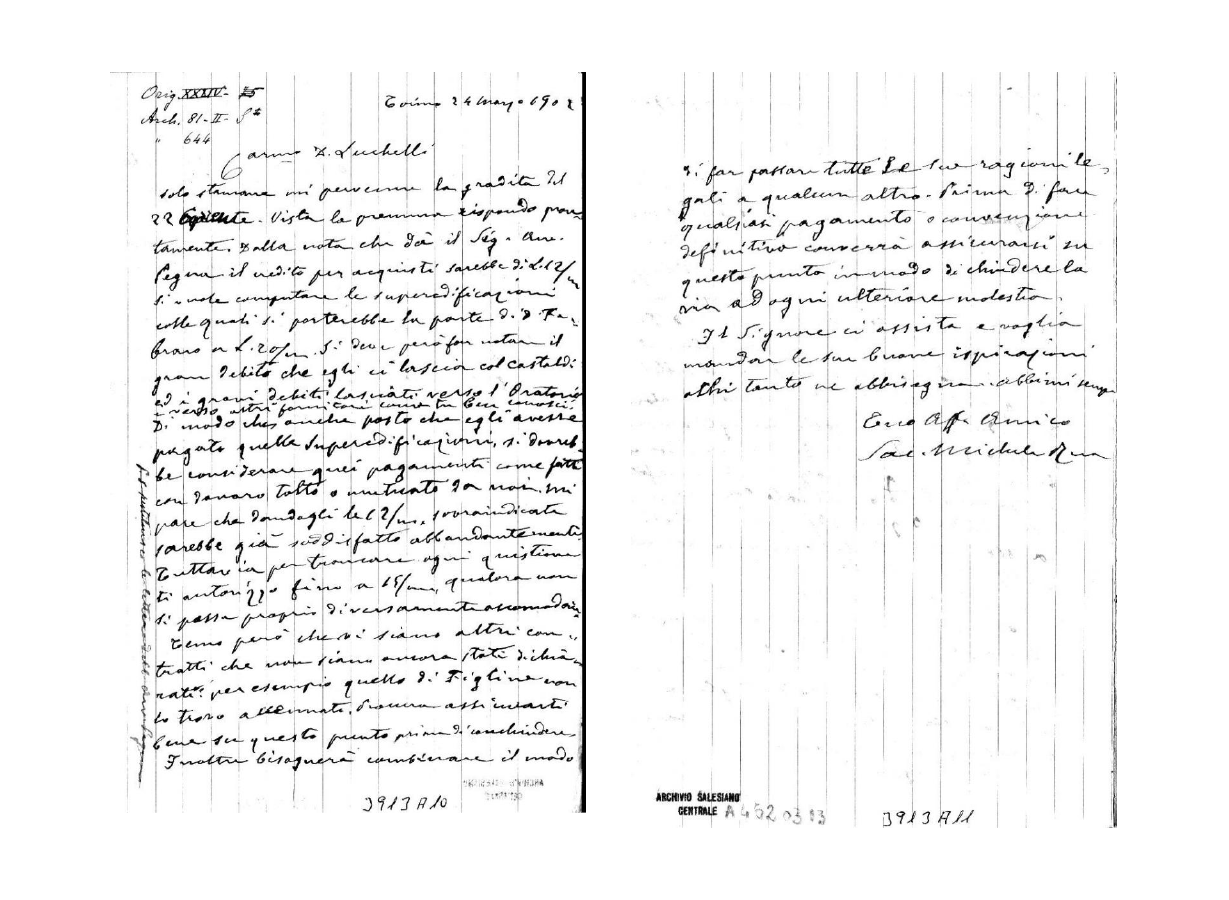 Orig. XXXIV - 15
Arch. 81-II-S#
" 644
Torino 24 Marzo 190
Carmo D. Luchelli
solo stamane mi pervenne la gradita del
22 corrente. Vista la premura rispondo pron-
tamente. Dalla nota che dà il Sig. Avv.
il credito per acquisti sarebbe di L. 12/m
si vuole computare le superedificazioni
colle quali si porterebbe la parte di D. Fe-
braro a L. 20/m. Si deve però far notare il
gran debito che egli ci lascia col Castaldi
ed i gravi debiti lasciati verso l'Oratorio
e verso altri fornitori come tu ben conosci.
Di modo che anche posto che egli avesse
pagato quelle superedificazioni, si dovreb-
be considerare quei pagamenti come fatti
con danaro tolto o mutuato da noi. Mi
pare che dandogli le 12/m, sovraindicate
sarebbe già soddisfatto abbondantemente
Tuttavia per troncare ogni quistione
ti autorizzo fino a 15/m, qualora non
si possa proprio diversamente accomodare.
Temo però che vi siano altri con-
tratti che non siano ancora stati dichia-
rati: per esempio quello di Figline non
lo trovo accennato. Procura assicurarti
bene su questo punto prima di conchiudere.
Inoltre bisognerà combinare il modo
P.S. restituisco le lettere
ARCHIVIO SALESIANO
CENTRALE
3913A10
di far passare tutte le sue ragioni le-
gali a qualcun altro. Prima di fare
qualsiasi pagamento o convenzione
definitiva converrà assicurarsi su
questo punto in modo di chiudere la
via ad ogni ulteriore molestia.
Il Signore ci assista e voglia
mandar le sue buone ispirazioni
a chi tanto ne abbisogna. Abbimi sempre
Tuo Aff. Amico
Sac. Michele Rua
ARCHIVIO SALESIANO
CENTRALE
A4520313
3913A11